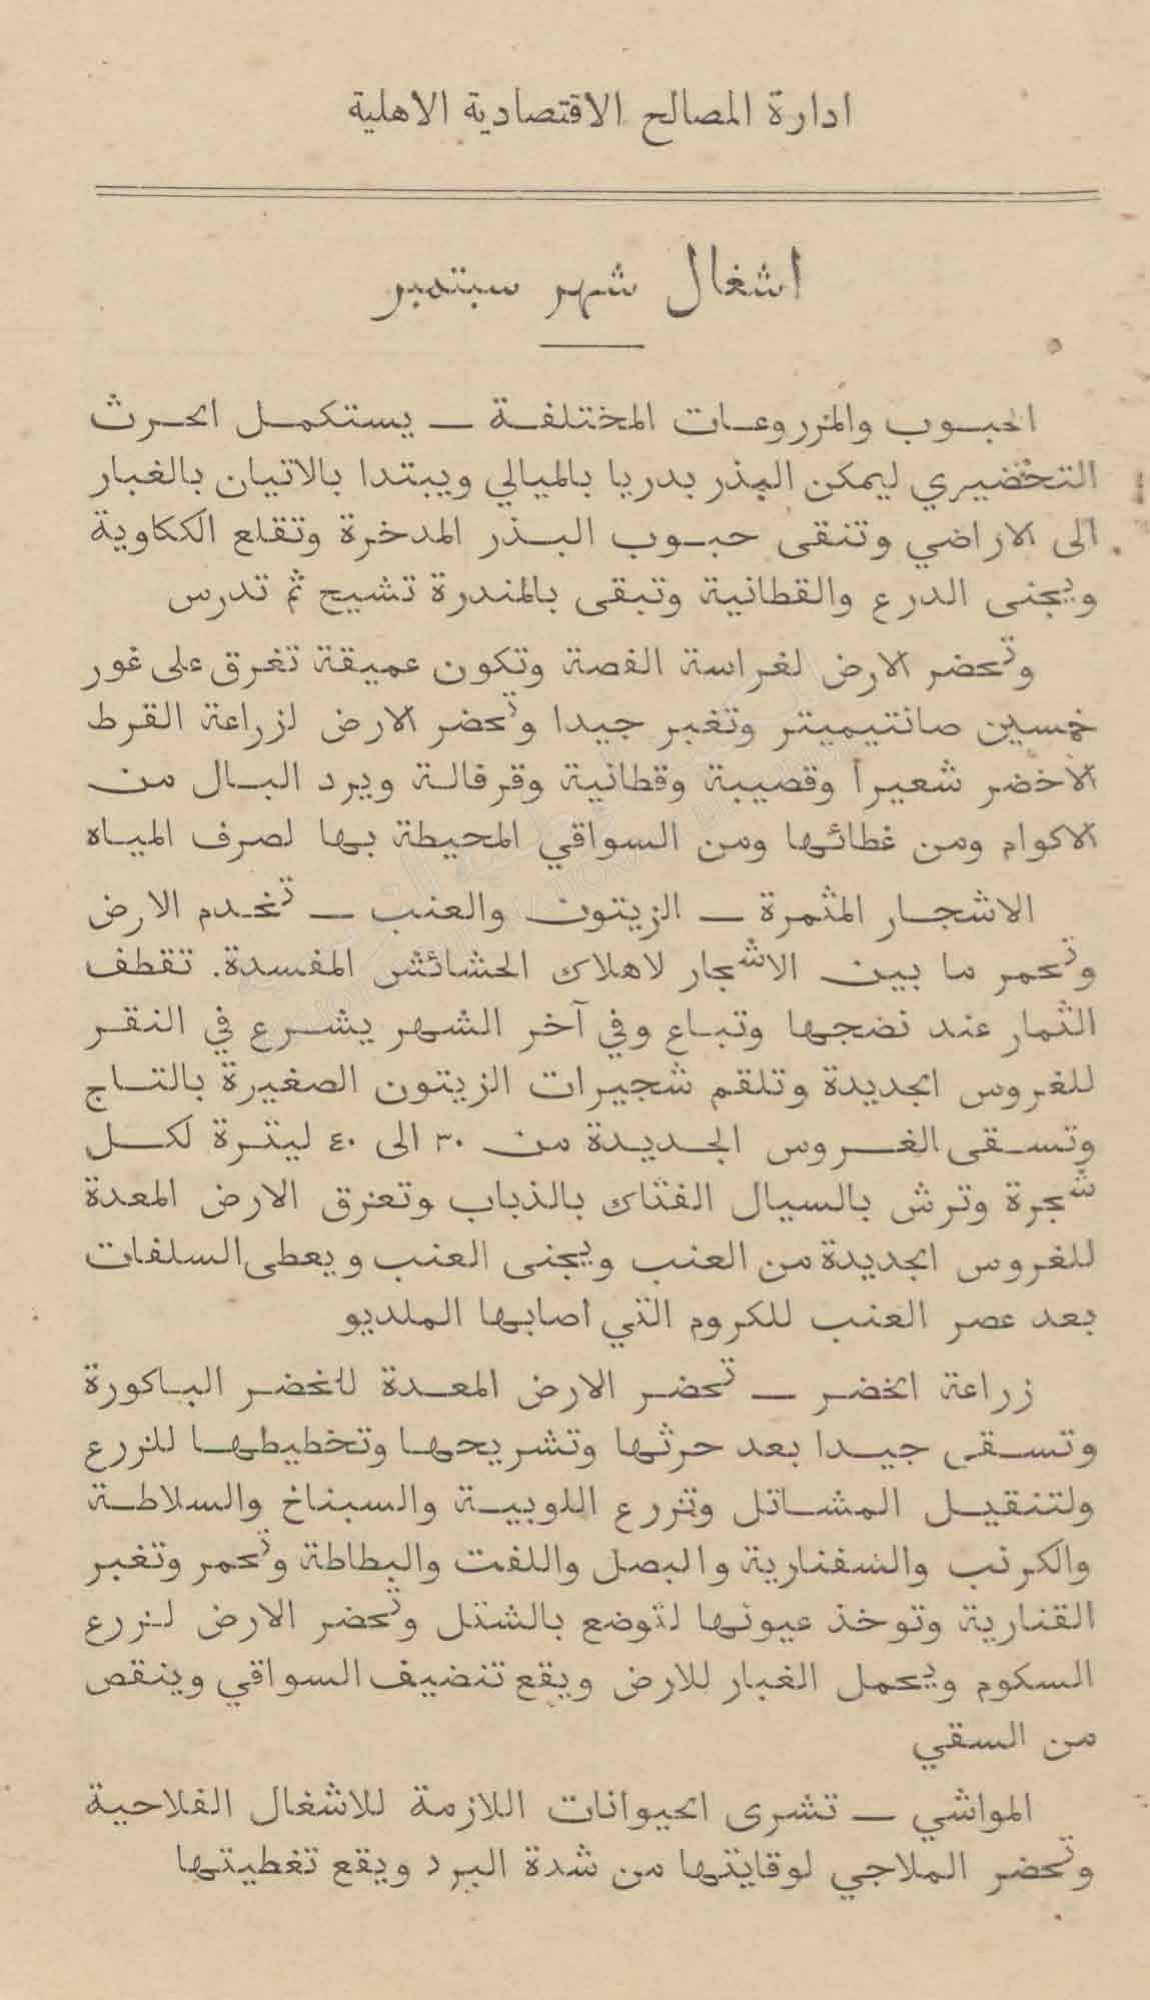 ادارة المصالح الاقتصادية الاهلية
اشغال شهر سبتمبر
الحبوب والمزروعات المختلفة — يستكمل الحرث
التحضيري ليمكن البذر بدريا بالميالي ويبتدا بالاتيان بالغبار
الى الاراضي وتنقى حبوب البذر المدخرة وتقلع الككاوية
ويجنى الدرع والقطانية وتبقى بالمندرة تشيح ثم تدرس
وتحضر الارض لغراسة الفصة وتكون عميقة تغرق على غور
خمسين صانتيميتر وتغبر جيدا وتحضر الارض لزراعة القرط
الاخضر شعيرا وقصيبة وقطانية وقرفالة ويرد البال من
الاكوام ومن غطائها ومن السواقي المحيطة بها لصرف المياه
الاشجار المثمرة — الزيتون والعنب — تخدم الارض
وتحمر ما بين الاشجار لاهلاك الحشائش المفسدة. تقطف
الثمار عند نضجها وتباع وفي آخر الشهر يشرع في النقر
للغروس الجديدة وتلقم شجيرات الزيتون الصغيرة بالتاج
وتسقى الغروس الجديدة من ٣٠ الى ٤٠ ليترة لكل
شجرة وترش بالسيال الفتاك بالذباب وتعزق الارض المعدة
للغروس الجديدة من العنب ويجنى العنب ويعطى السلفات
بعد عصر العنب للكروم التي اصابها الملديو
زراعة الخضر — تحضر الارض المعدة للخضر الباكورة
وتسقى جيدا بعد حرثها وتشريحها وتخطيطها للزرع
ولتنقيل المشاتل وتزرع اللوبية والسبناخ والسلاطة
والكرنب والسفنارية والبصل واللفت والبطاطة وتحمر وتغبر
القنارية وتوخذ عيونها لتوضع بالشتل وتحضر الارض لزرع
السكوم ويحمل الغبار للارض ويقع تنضيف السواقي وينقص
من السقي
المواشي — تشرى الحيوانات اللازمة للاشغال الفلاحية
وتحضر الملاجي لوقايتها من شدة البرد ويقع تغطيتها